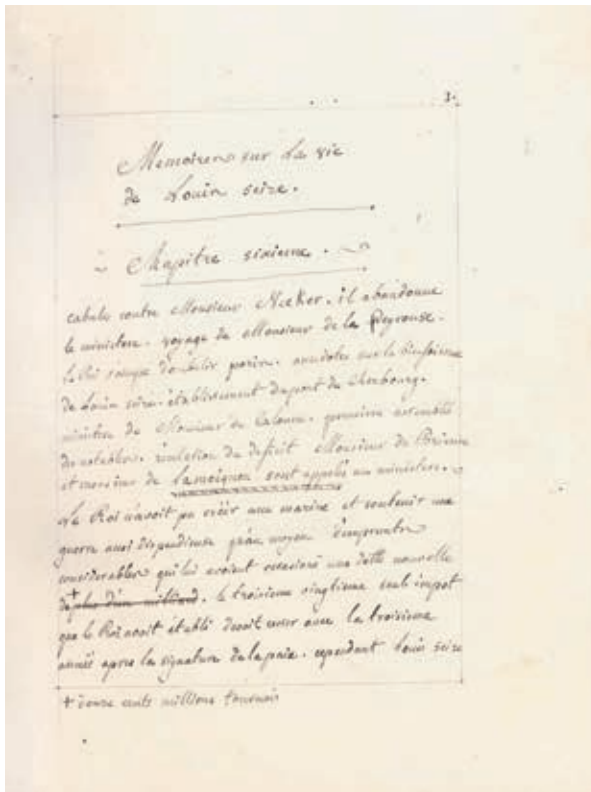 3.
Memoires sur La vie
de Louis seize.
Chapitre sixieme.
cabale contre Monsieur Necker. il abandonne
le ministere. voyage de Monsieur de la Peyrouse.
le Roi d'abolir anecdotes sur la bienfaisance
de Louis seize. établissement du port de Cherbourg.
ministre de Monsieur de Calonne. premiere assemblée
des notables. revelation du deficit Monsieur de Brienne
et monsieur de Lamoignon sont appelés au ministere.
Le Roi n'avoit pu créer une marine et soutenir une
guerre aussi dispendieuse qu'au moyen d'emprunts
considerables qui lui avoient occasioné une dette nouvelle
de + plus d'un milliard. le troisieme vingtieme seul impot
que le Roi avoit établi devoit cesser avec la troisieme
année apres la signature de la paix. cependant Louis seize
+ douze cents millions tournois